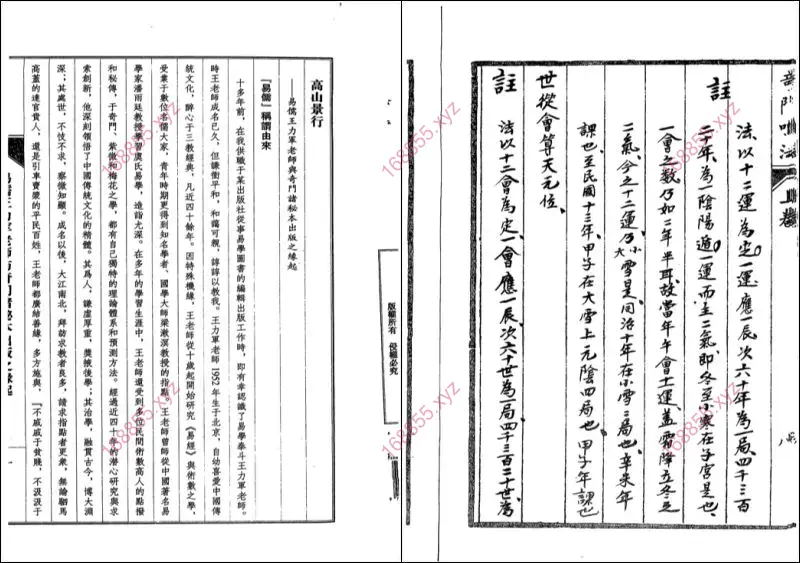 高山景行
——易儒王力軍老師與奇門諸秘本出版之緣起
『易儒』稱謂由來
十多年前，在我供職于某出版社從事易學圖書的編輯出版工作時，即有幸認識了易學泰斗王力軍老師。
時王老師成名已久，但謙衝平和，和藹可親，諄諄以教我。王力軍老師1952年生于北京，自幼喜愛中國傳
統文化，醉心于三教經典，凡近四十餘年。因特殊機緣，王老師從十歲起開始研究《易經》與術數之學，
受業于數位名儒大家，青年時期更得到知名學者、國學大師梁漱溟教授的指點。王老師曾師從中國著名易
學家潘雨廷教授學習虞氏易學，造詣尤深。在多年的學習生涯中，王老師還受到多位民間術數高人的點撥
和秘傳，于奇門、紫微和梅花之學，都有自己獨特的理論體系和預測方法。經過近四十年的潛心研究與求
索創新，他深刻領悟了中國傳統文化的精髓。其爲人，謙虛厚重，獎掖後學；其治學，融貫古今，博大淵
深；其處世，不忮不求，察微知顯。成名以後，大江南北，拜訪求教者良多，請求指點者更衆，無論駟馬
高蓋的達官貴人，還是引車賣漿的平民百姓，王老師都廣結善緣，多方施與，『不戚戚于貧賤，不汲汲于
易儒王力軍老師與奇門諸秘本出版之緣起
一
版權所有　侵權必究
奇門吟法
上卷
法以十二運為定一運應一辰次六十年為一局四千三百
二十年為一陰陽遁一運而主二氣即冬至小寒在子宮是也
註
一會之數乃如二年半耳故當年午會十一運蓋霜降立冬之
二氣今之十二運乃小大雪是同治十年在小雪二局也辛未年
課也至民國十三年甲子在大雪上元陰四局也甲子年課也
世從會算天元位
註
法以十二會為定一會應一辰次六十世為一局四千三百二十世為
168855.xyz
168855.xyz
168855.xyz
168855.xyz
168855.xyz
168855.xyz